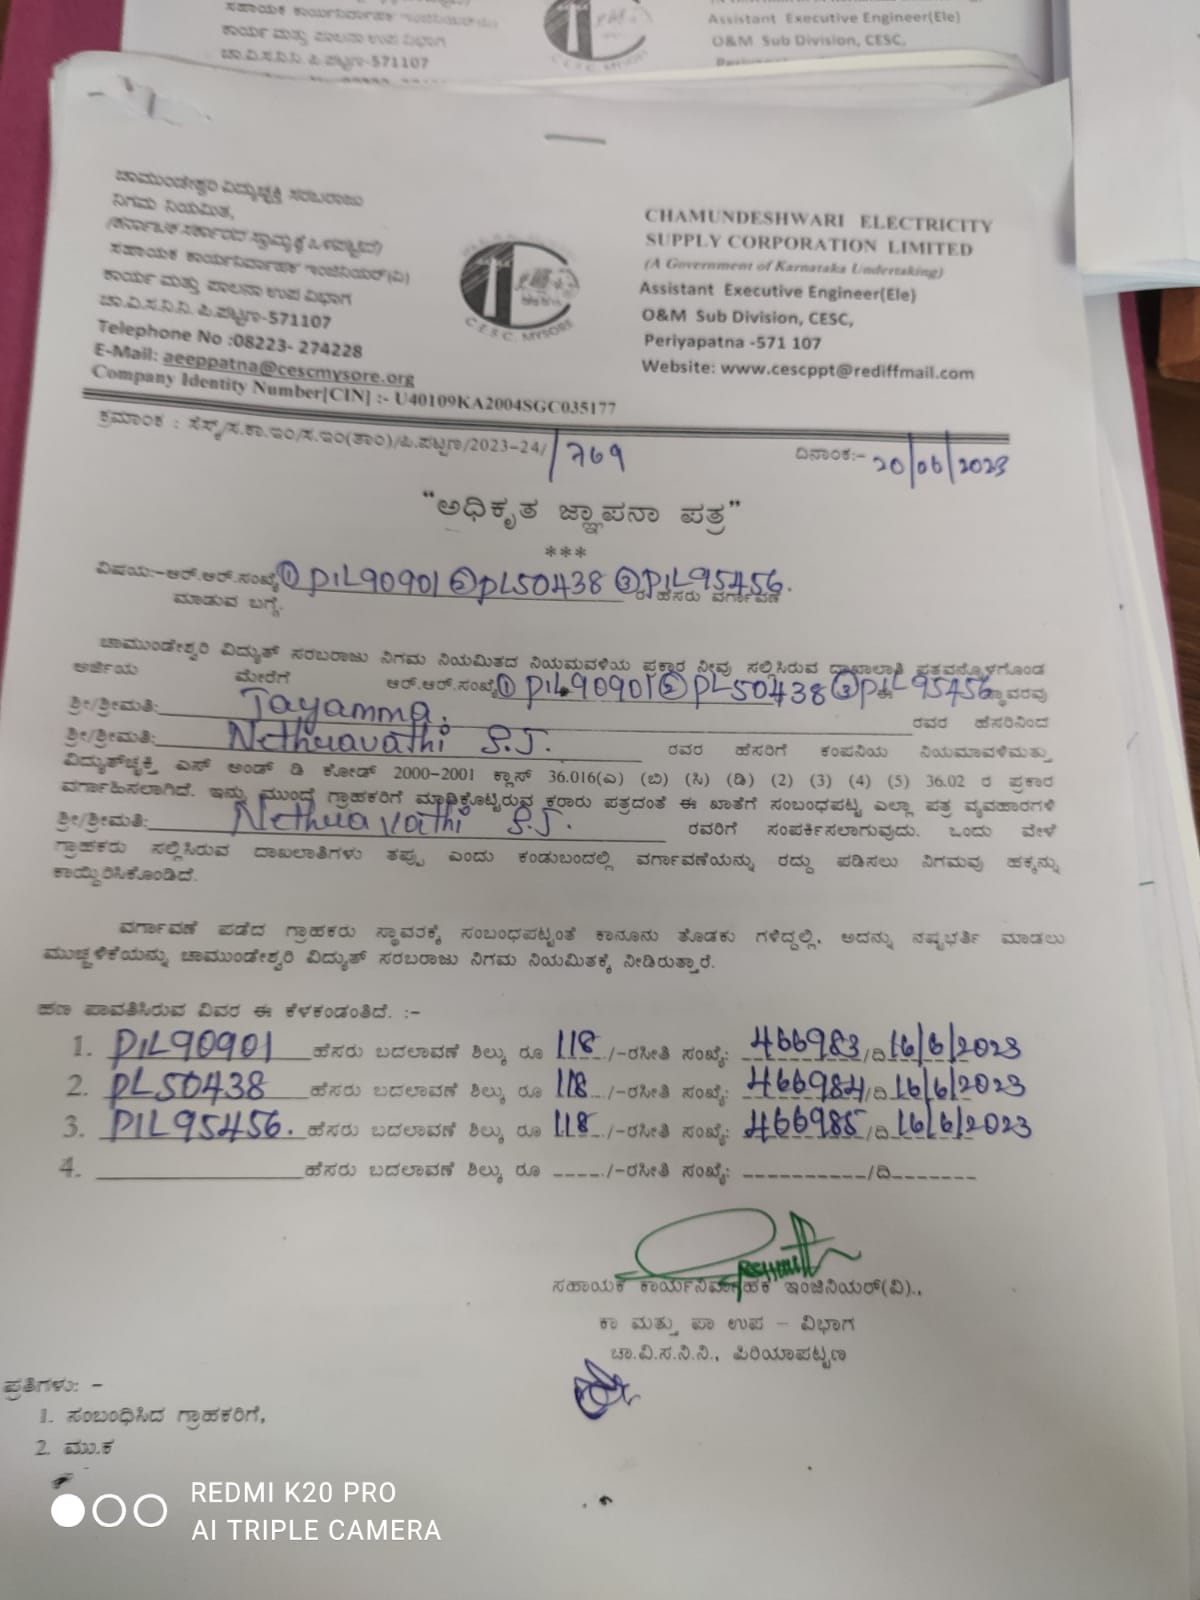 ಸಹಾಯಕ ಕಾರ್ಯನಿರ್ವಾಹಕ
ಕಾರ್ಯ ಮತ್ತು ಪಾಲನಾ ಉಪ ವಿಭಾಗ
ಚಾ.ವಿ.ಸ.ನಿ.ನಿ. ಪಿ.ಪಟ್ಟಣ-571107
Assistant Executive Engineer(Ele)
O&M Sub Division, CESC,
ಚಾಮುಂಡೇಶ್ವರಿ ವಿದ್ಯುಚ್ಛಕ್ತಿ ಸರಬರಾಜು
ನಿಗಮ ನಿಯಮಿತ,
(ಕರ್ನಾಟಕ ಸರ್ಕಾರದ ಸ್ವಾಮ್ಯಕ್ಕೆ ಒಳಪಟ್ಟಿದೆ)
ಸಹಾಯಕ ಕಾರ್ಯನಿರ್ವಾಹಕ ಇಂಜಿನಿಯರ್(ವಿ)
ಕಾರ್ಯ ಮತ್ತು ಪಾಲನಾ ಉಪ ವಿಭಾಗ
ಚಾ.ವಿ.ಸ.ನಿ.ನಿ. ಪಿ.ಪಟ್ಟಣ-571107
Telephone No :08223- 274228
E-Mail: aeeppatna@cescmysore.org
Company Identity Number[CIN] :- U40109KA2004SGC035177
C.E.S.C. MYSORE
CHAMUNDESHWARI ELECTRICITY
SUPPLY CORPORATION LIMITED
(A Government of Karnataka Undertaking)
Assistant Executive Engineer(Ele)
O&M Sub Division, CESC,
Periyapatna -571 107
Website: www.cescppt@rediffmail.com
ಕ್ರಮಾಂಕ : ಸೆಸ್ಕ್/ಸ.ಕಾ.ಇಂ/ಸ.ಇಂ(ತಾಂ)/ಪಿ.ಪಟ್ಟಣ/2023-24/ 769 ದಿನಾಂಕ:- 20/06/2023
"ಅಧಿಕೃತ ಜ್ಞಾಪನಾ ಪತ್ರ"
***
ವಿಷಯ:-ಆರ್.ಆರ್.ಸಂಖ್ಯೆ ① P1L90901 ② PL50438 ③ P1L95456. ರ ಹೆಸರು ವರ್ಗಾವಣೆ
ಮಾಡುವ ಬಗ್ಗೆ.
ಚಾಮುಂಡೇಶ್ವರಿ ವಿದ್ಯುತ್ ಸರಬರಾಜು ನಿಗಮ ನಿಯಮಿತದ ನಿಯಮವಳಿಯ ಪ್ರಕಾರ ನೀವು ಸಲ್ಲಿಸಿರುವ ದಾಖಲಾತಿ ಪತ್ರವನ್ನೊಳಗೊಂಡ
ಅರ್ಜಿಯ ಮೇರೆಗೆ ಆರ್.ಆರ್.ಸಂಖ್ಯೆ ① P1L90901 ② PL50438 ③ P1L95456 ಈ ಸ್ಥಾವರವು
ಶ್ರೀ/ಶ್ರೀಮತಿ: Jayamma. ರವರ ಹೆಸರಿನಿಂದ
ಶ್ರೀ/ಶ್ರೀಮತಿ: Nethravathi S.J. ರವರ ಹೆಸರಿಗೆ ಕಂಪನಿಯ ನಿಯಮಾವಳಿಮತ್ತು
ವಿದ್ಯುತ್‌ಚ್ಛಕ್ತಿ ಎಸ್ ಅಂಡ್ ಡಿ ಕೋಡ್ 2000-2001 ಕ್ಲಾಸ್ 36.016(ಎ) (ಬಿ) (ಸಿ) (ಡಿ) (2) (3) (4) (5) 36.02 ರ ಪ್ರಕಾರ
ವರ್ಗಾಹಿಸಲಾಗಿದೆ. ಇನ್ನು ಮುಂದೆ ಗ್ರಾಹಕರಿಗೆ ಮಾಡಿಕೊಟ್ಟಿರುವ ಕರಾರು ಪತ್ರದಂತೆ ಈ ಖಾತೆಗೆ ಸಂಬಂಧಪಟ್ಟ ಎಲ್ಲಾ ಪತ್ರ ವ್ಯವಹಾರಗಳ
ಶ್ರೀ/ಶ್ರೀಮತಿ: Nethravathi S.J. ರವರಿಗೆ ಸಂಪರ್ಕಿಸಲಾಗುವುದು. ಒಂದು ವೇಳೆ
ಗ್ರಾಹಕರು ಸಲ್ಲಿಸಿರುವ ದಾಖಲಾತಿಗಳು ತಪ್ಪು ಎಂದು ಕಂಡುಬಂದಲ್ಲಿ ವರ್ಗಾವಣೆಯನ್ನು ರದ್ದು ಪಡಿಸಲು ನಿಗಮವು ಹಕ್ಕನ್ನು
ಕಾಯ್ದಿರಿಸಿಕೊಂಡಿದೆ.
ವರ್ಗಾವಣೆ ಪಡೆದ ಗ್ರಾಹಕರು ಸ್ಥಾವರಕ್ಕೆ ಸಂಬಂಧಪಟ್ಟಂತೆ ಕಾನೂನು ತೊಡಕು ಗಳಿದ್ದಲ್ಲಿ, ಅದನ್ನು ನಷ್ಟಭರ್ತಿ ಮಾಡಲು
ಮುಚ್ಚಳಿಕೆಯನ್ನು ಚಾಮುಂಡೇಶ್ವರಿ ವಿದ್ಯುತ್ ಸರಬರಾಜು ನಿಗಮ ನಿಯಮಿತಕ್ಕೆ ನೀಡಿರುತ್ತಾರೆ.
ಹಣ ಪಾವತಿಸಿರುವ ವಿವರ ಈ ಕೆಳಕಂಡಂತಿದೆ. :-
1. P1L90901 ಹೆಸರು ಬದಲಾವಣೆ ಶಿಲ್ಕು ರೂ 118 /-ರಸೀತಿ ಸಂಖ್ಯೆ: 466983/ದಿ 16/6/2023
2. PL50438 ಹೆಸರು ಬದಲಾವಣೆ ಶಿಲ್ಕು ರೂ 118 /-ರಸೀತಿ ಸಂಖ್ಯೆ: 466984/ದಿ 16/6/2023
3. P1L95456. ಹೆಸರು ಬದಲಾವಣೆ ಶಿಲ್ಕು ರೂ 118 /-ರಸೀತಿ ಸಂಖ್ಯೆ: 466985/ದಿ 16/6/2023
4. ಹೆಸರು ಬದಲಾವಣೆ ಶಿಲ್ಕು ರೂ ----./-ರಸೀತಿ ಸಂಖ್ಯೆ: ----------/ದಿ-------
ಸಹಾಯಕ ಕಾರ್ಯನಿರ್ವಾಹಕ ಇಂಜಿನಿಯರ್(ವಿ).,
ಕಾ ಮತ್ತು ಪಾ ಉಪ - ವಿಭಾಗ
ಚಾ.ವಿ.ಸ.ನಿ.ನಿ., ಪಿರಿಯಾಪಟ್ಟಣ
ಪ್ರತಿಗಳು: -
1. ಸಂಬಂಧಿಸಿದ ಗ್ರಾಹಕರಿಗೆ,
2. ಮು.ಕ
REDMI K20 PRO
AI TRIPLE CAMERA